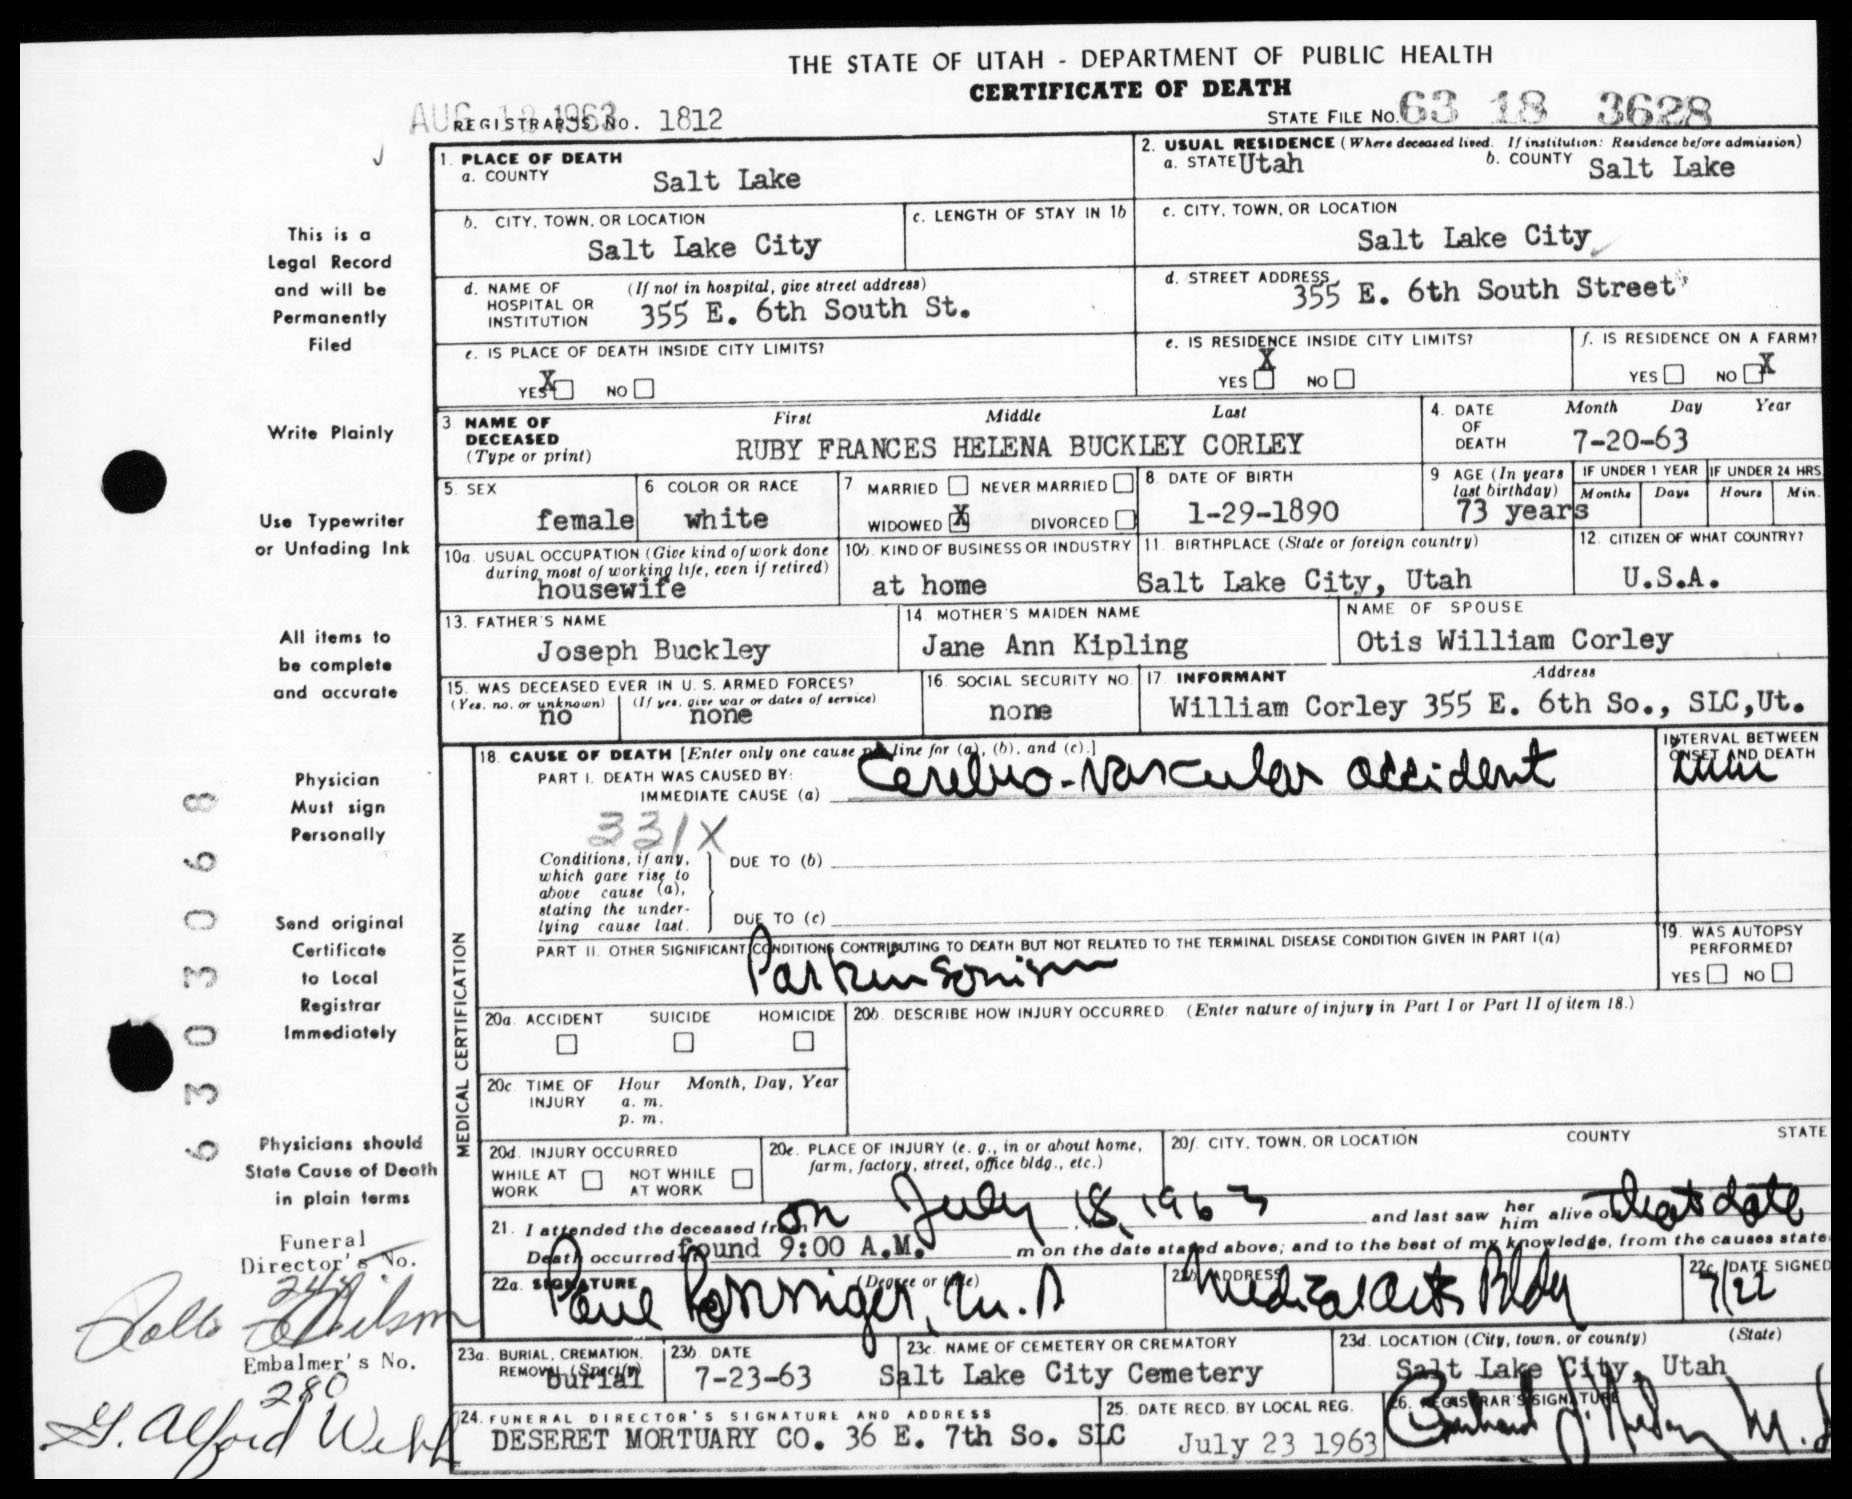 THE STATE OF UTAH - DEPARTMENT OF PUBLIC HEALTH
CERTIFICATE OF DEATH
AUG 1963
REGISTRAR'S NO. 1812
STATE FILE No. 63 18 3628
1. PLACE OF DEATH
a. COUNTY Salt Lake
2. USUAL RESIDENCE (Where deceased lived. If institution: Residence before admission)
a. STATE Utah b. COUNTY Salt Lake
b. CITY, TOWN, OR LOCATION Salt Lake City
c. LENGTH OF STAY IN 1b
c. CITY, TOWN, OR LOCATION Salt Lake City
d. NAME OF HOSPITAL OR INSTITUTION (If not in hospital, give street address) 355 E. 6th South St.
d. STREET ADDRESS 355 E. 6th South Street
e. IS PLACE OF DEATH INSIDE CITY LIMITS?
YES X NO
e. IS RESIDENCE INSIDE CITY LIMITS?
YES X NO
f. IS RESIDENCE ON A FARM?
YES NO X
3 NAME OF DECEASED (Type or print)
First Middle Last
RUBY FRANCES HELENA BUCKLEY CORLEY
4. DATE OF DEATH Month Day Year
7-20-63
5. SEX female
6 COLOR OR RACE white
7 MARRIED NEVER MARRIED
WIDOWED X DIVORCED
8. DATE OF BIRTH 1-29-1890
9 AGE (In years last birthday) 73 years
IF UNDER 1 YEAR Months Days
IF UNDER 24 HRS. Hours Min.
10a. USUAL OCCUPATION (Give kind of work done during most of working life, even if retired) housewife
10b. KIND OF BUSINESS OR INDUSTRY at home
11. BIRTHPLACE (State or foreign country) Salt Lake City, Utah
12. CITIZEN OF WHAT COUNTRY? U.S.A.
13. FATHER'S NAME Joseph Buckley
14. MOTHER'S MAIDEN NAME Jane Ann Kipling
NAME OF SPOUSE Otis William Corley
15. WAS DECEASED EVER IN U. S. ARMED FORCES?
(Yes, no, or unknown) no (If yes, give war or dates of service) none
16. SOCIAL SECURITY NO. none
17. INFORMANT Address
William Corley 355 E. 6th So., SLC,Ut.
MEDICAL CERTIFICATION
18. CAUSE OF DEATH [Enter only one cause line for (a), (b), and (c).]
PART I. DEATH WAS CAUSED BY:
IMMEDIATE CAUSE (a) Cerebro-Vascular accident
INTERVAL BETWEEN ONSET AND DEATH
331X
Conditions, if any, which gave rise to above cause (a), stating the underlying cause last.
DUE TO (b)
DUE TO (c)
PART II. OTHER SIGNIFICANT CONDITIONS CONTRIBUTING TO DEATH BUT NOT RELATED TO THE TERMINAL DISEASE CONDITION GIVEN IN PART I(a)
Parkinsonism
19. WAS AUTOPSY PERFORMED?
YES NO
20a. ACCIDENT SUICIDE HOMICIDE
20b. DESCRIBE HOW INJURY OCCURRED. (Enter nature of injury in Part I or Part II of item 18.)
20c. TIME OF INJURY Hour Month, Day, Year
a. m.
p. m.
20d. INJURY OCCURRED
WHILE AT WORK NOT WHILE AT WORK
20e. PLACE OF INJURY (e. g., in or about home, farm, factory, street, office bldg., etc.)
20f. CITY, TOWN, OR LOCATION COUNTY STATE
21. I attended the deceased from on July 18, 1963 and last saw her him alive on that date
Death occurred found 9:00 A.M. m on the date stated above; and to the best of my knowledge, from the causes state
22a. SIGNATURE (Degree or title) M.D
22b. ADDRESS Medical Arts Bldg
22c. DATE SIGNED 7/22
23a. BURIAL, CREMATION, REMOVAL (Specify) burial
23b. DATE 7-23-63
23c. NAME OF CEMETERY OR CREMATORY Salt Lake City Cemetery
23d. LOCATION (City, town, or county) (State)
Salt Lake City, Utah
24. FUNERAL DIRECTOR'S SIGNATURE AND ADDRESS
DESERET MORTUARY CO. 36 E. 7th So. SLC
25. DATE RECD. BY LOCAL REG.
July 23 1963
26. REGISTRAR'S SIGNATURE
This is a
Legal Record
and will be
Permanently
Filed
Write Plainly
Use Typewriter
or Unfading Ink
All items to
be complete
and accurate
Physician
Must sign
Personally
Send original
Certificate
to Local
Registrar
Immediately
Physicians should
State Cause of Death
in plain terms
Funeral
Director's No.
Embalmer's No.
280
G. Alford Webb
6303068